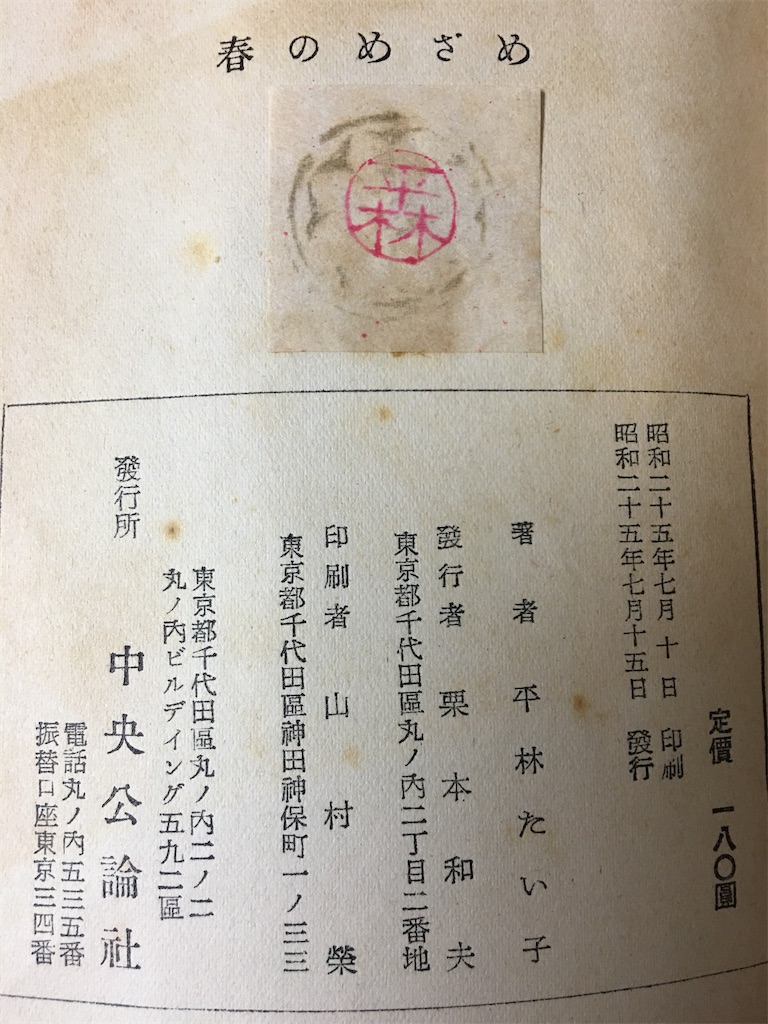 春のめざめ
平林
定價 一八〇圓
昭和二十五年七月 十 日 印刷
昭和二十五年七月十五日 發行
著者 平林たい子
發行者 栗本和夫
東京都千代田區丸ノ內二丁目二番地
印刷者 山村榮
東京都千代田區神田神保町一ノ三三
東京都千代田區丸ノ內二ノ二
丸ノ內ビルデイング五九二區
發行所 中央公論社
電話丸ノ內五三五番
振替口座東京三四番